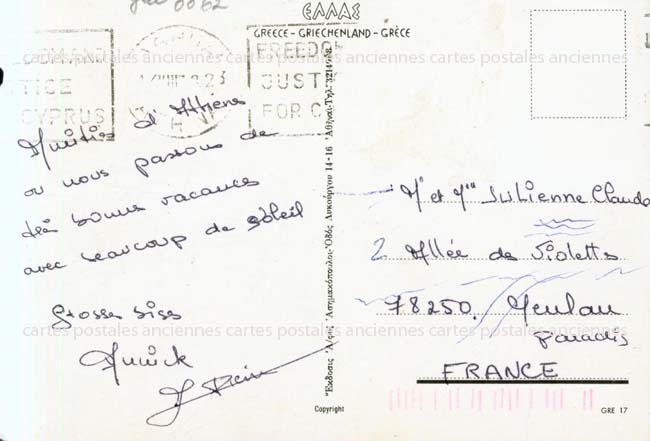 ΕΛΛΑΣ
GREECE - GRIECHENLAND - GRÈCE
FREEDO
JUST
FOR C
TICE
CYPRUS
Amitiés d'Athènes
ou nous passons de
très bonnes vacances
avec beaucoup de soleil
Grosses bises
Annick
Mr et Mme Julienne Claude
2 Allée des Violettes
78250. Meulan
Paradis
FRANCE
cartes postales anciennes cartes postales anciennes cartes postales anciennes
cartes postales anciennes cartes postales anciennes cartes postales anciennes
Λυκούργου 14-16 Ἀθῆναι-Τηλ. 3214958
Copyright
GRE 17